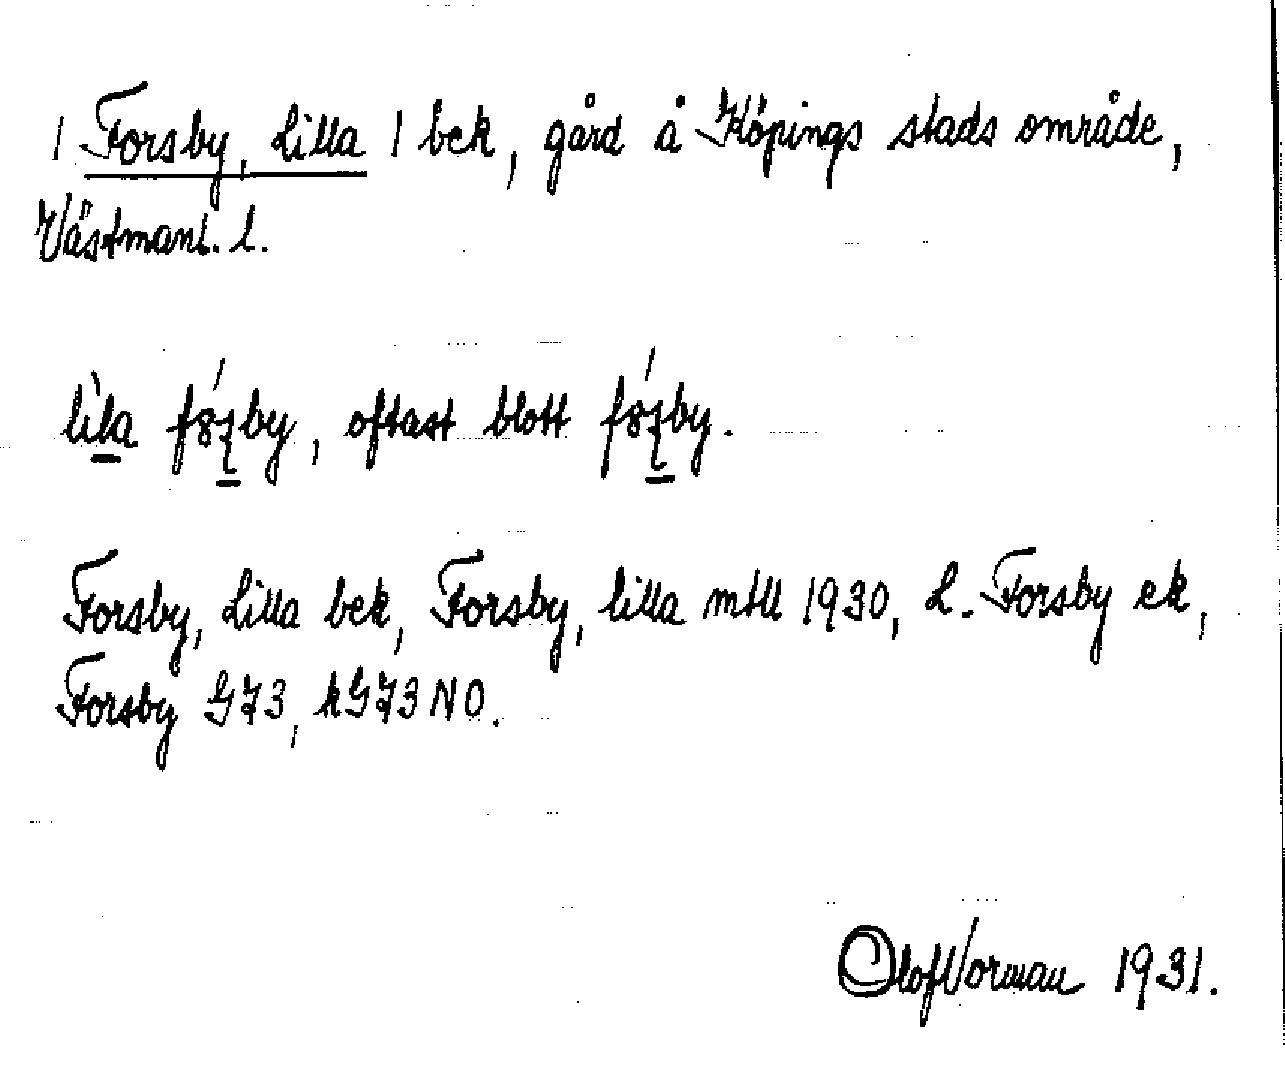 / Forsby, Lilla / bek, gård å Köpings stads område,
Västmanl. l.
oftast blott
Forsby, Lilla bek, Forsby, lilla mtll 1930, L. Forsby ek,
Forsby G73, kG73 NO.
Olof Vorman 1931.